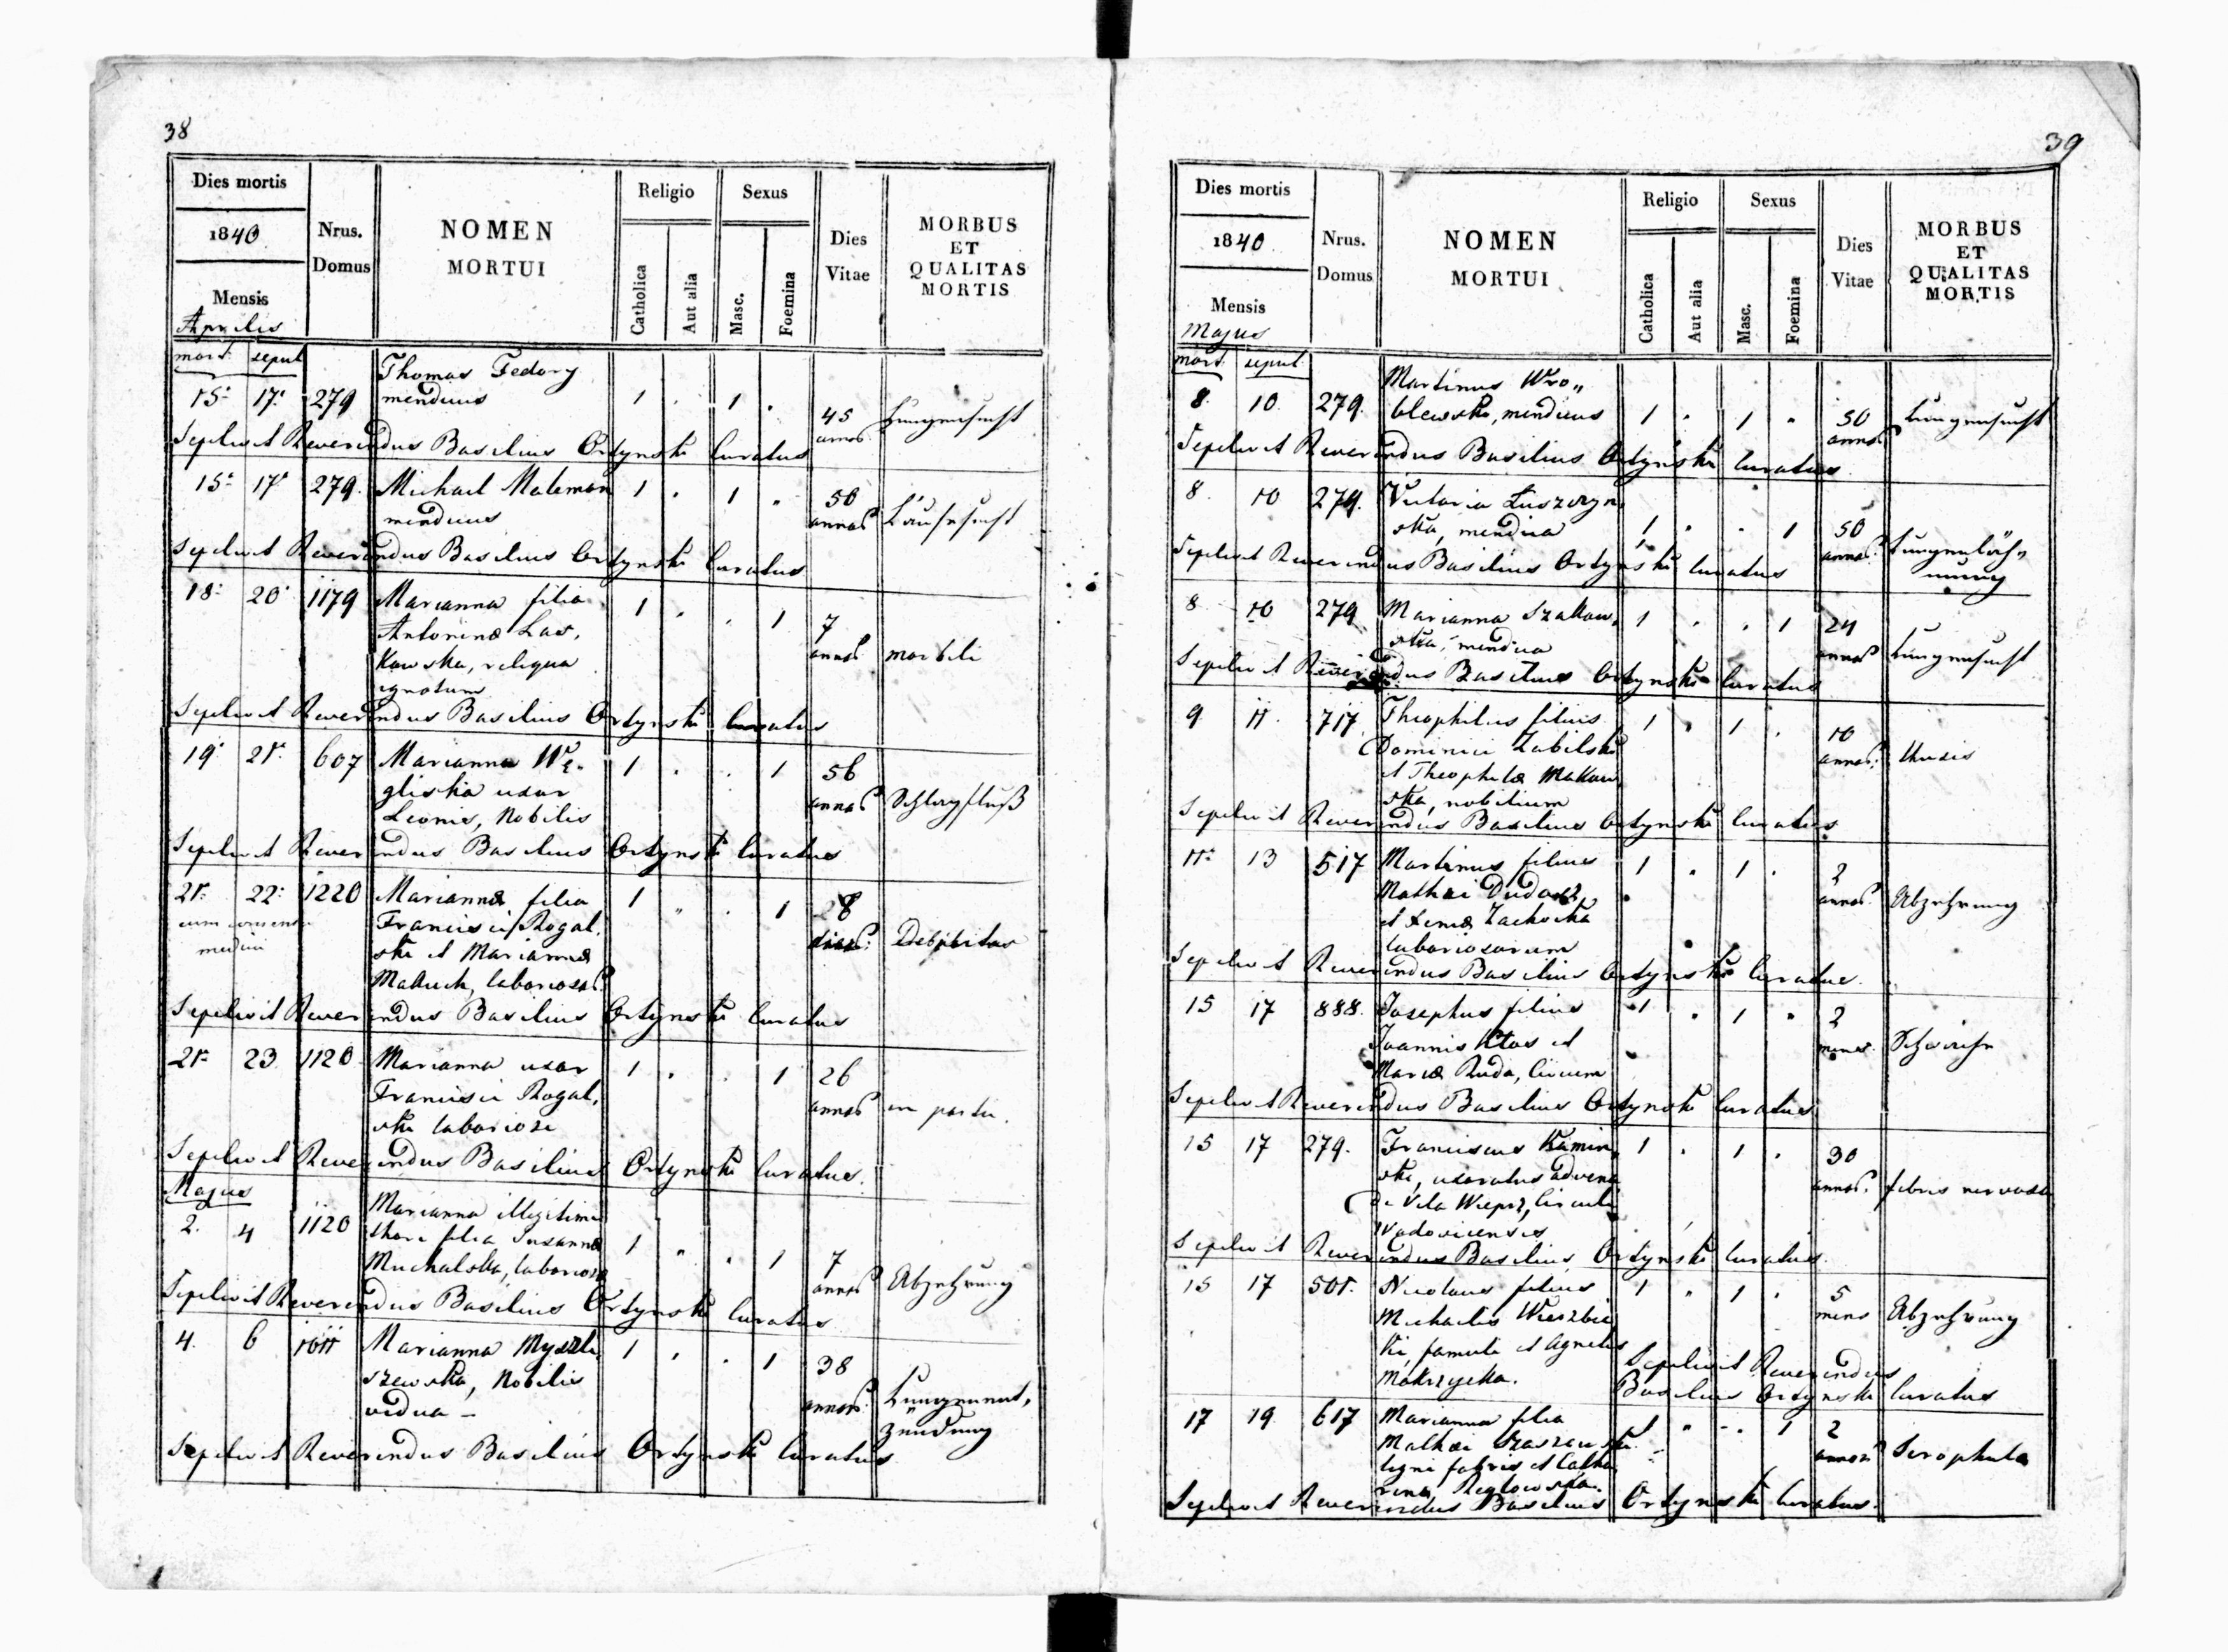 38
Dies mortis
1840
Mensis
Aprilis
Nrus. Domus
NOMEN
MORTUI
Religio
Catholica
Aut alia
Sexus
Masc.
Foemina
Dies
Vitae
MORBUS
ET
QUALITAS
MORTIS
mort. sepul.
Thomas Fedory
15. 17. 279 mendicus 1 . 1 . 45 Lungensucht
annos
Sepelivit Reverendus Basilius Ortynski Curatus
15. 17. 279. Michael 1 . 1 . 50
mendicus annos
Sepelivit Reverendus Basilius Ortynski Curatus
18. 20. 1179 Marianna filia 1 . . 1 7
Antoninæ Las,
kowska, reliqua annos morbili
ignotum
Sepelivit Reverendus Basilius Ortynski Curatus
19. 21. 607 Marianna Wę- 1 . . 1 56
gliska uxor annos Schlagfluß
Leonis, Nobilis
Sepelivit Reverendus Basilius Ortynski Curatus
21. 22. 1220 Marianna filia 1 " . 1 28
cum consensu Francisci Rogal,
medici ski et Mariannæ dies: Debilitas
laborios.
Sepelivit Reverendus Basilius Ortynski Curatus
21. 23 1120 Marianna uxor 1 . . 1 26
Francisci Rogal, annos in partu.
ski laboriosi
Sepelivit Reverendus Basilius Ortynski Curatus.
Majus
Marianna illegitimi
2. 4 1120 thori filia Susannæ 1 " . 1 7
Michalska, laboriosa annos Abzehrung
Sepelivit Reverendus Basilius Ortynski Curatus
4. 6 1011 Marianna Myszli, 1 . . 1 38
szewska, Nobilis annos. Lungenent,
vidua – zündung
Sepelivit Reverendus Basilius Ortynski Curatus
39
Dies mortis
1840
Mensis
Majus
Nrus.
Domus
NOMEN
MORTUI
Religio
Catholica
Aut alia
Sexus
Masc.
Foemina
Dies
Vitae
MORBUS
ET
QUALITAS
MORTIS
mort. sepul.
Martinus Wro„
8. 10. 279. blewski, mendicus 1 . 1 " 50 Lungensucht
annos
Sepelivit Reverendus Basilius Ortynski Curatus.
8. 10 279. Victoria Łuszczyn,
ska, mendica 1 . . 1 50 Lungenläh„
annos. mung
Sepelivit Reverendus Basilius Ortynski Curatus
8 10 279 Marianna Szakow, 1 . . 1 24
ska, mendica annos Lungensucht
Sepelivit Reverendus Basilius Ortynski Curatus
9 11. 717 Theophilus filius 1 . 1 . 10
Dominici Zabilski annos:
et Theophilæ Makow
ska, nobilium
Sepelivit Reverendus Basilius Ortynski Curatus
11. 13 517 Martinus filius 1 . 1 . 2
Mathæi annos. Abzehrung
laboriosorum
Sepelivit Reverendus Basilius Ortynski Curatus.
15 17 888. Josephus filius 1 . 1 " 2
Joannis et mens.
Mariæ Ruda, civium
Sepelivit Reverendus Basilius Ortynski Curatus
15 17 279. Franciscus Kamin, 1 . 1 . 30
ski, uxoratus advena annos. febris nervosa
de Vila Wieprz, Circuli
Vadovicensis
Sepelivit Reverendus Basilius Ortynski Curatus.
15 17 501. Nicolaus filius 1 " 1 . 5
Michaelis Wierzbic mens Abzehrung
ki, famuli et Agnetis
Mokrzycka.
Sepelivit Reverendus
Basilius Ortynski Curatus
17 19. 617 Marianna filia 1 " . 1 2
Mathæi annos Scrophula
ligni fabris et Catha
rina
Sepelivit Reverendus Basilius Ortynski Curatus.